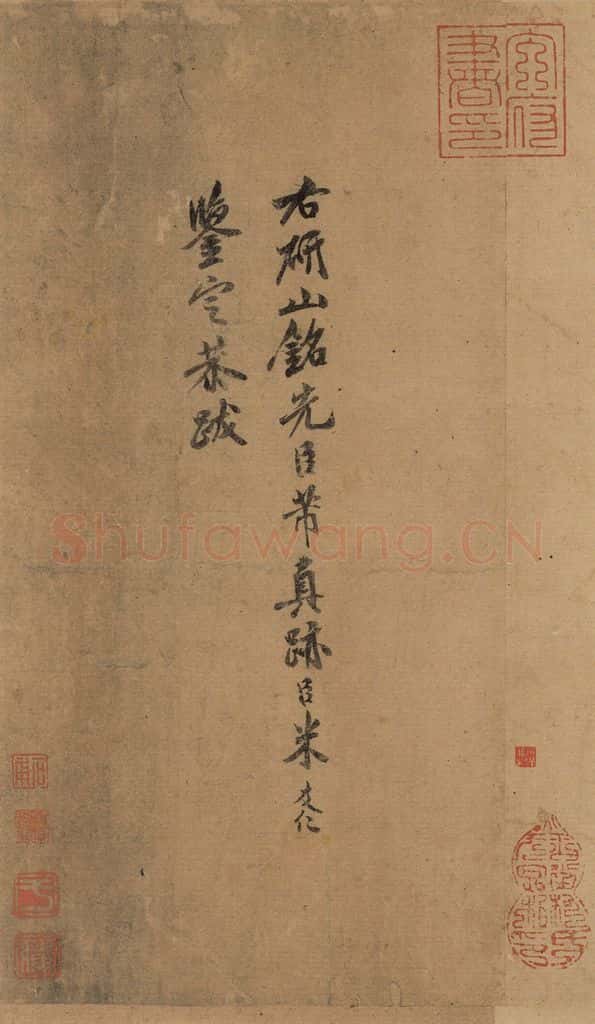 右研山銘先臣芾真跡臣米友仁
鑒定恭跋
Shufawang.CN